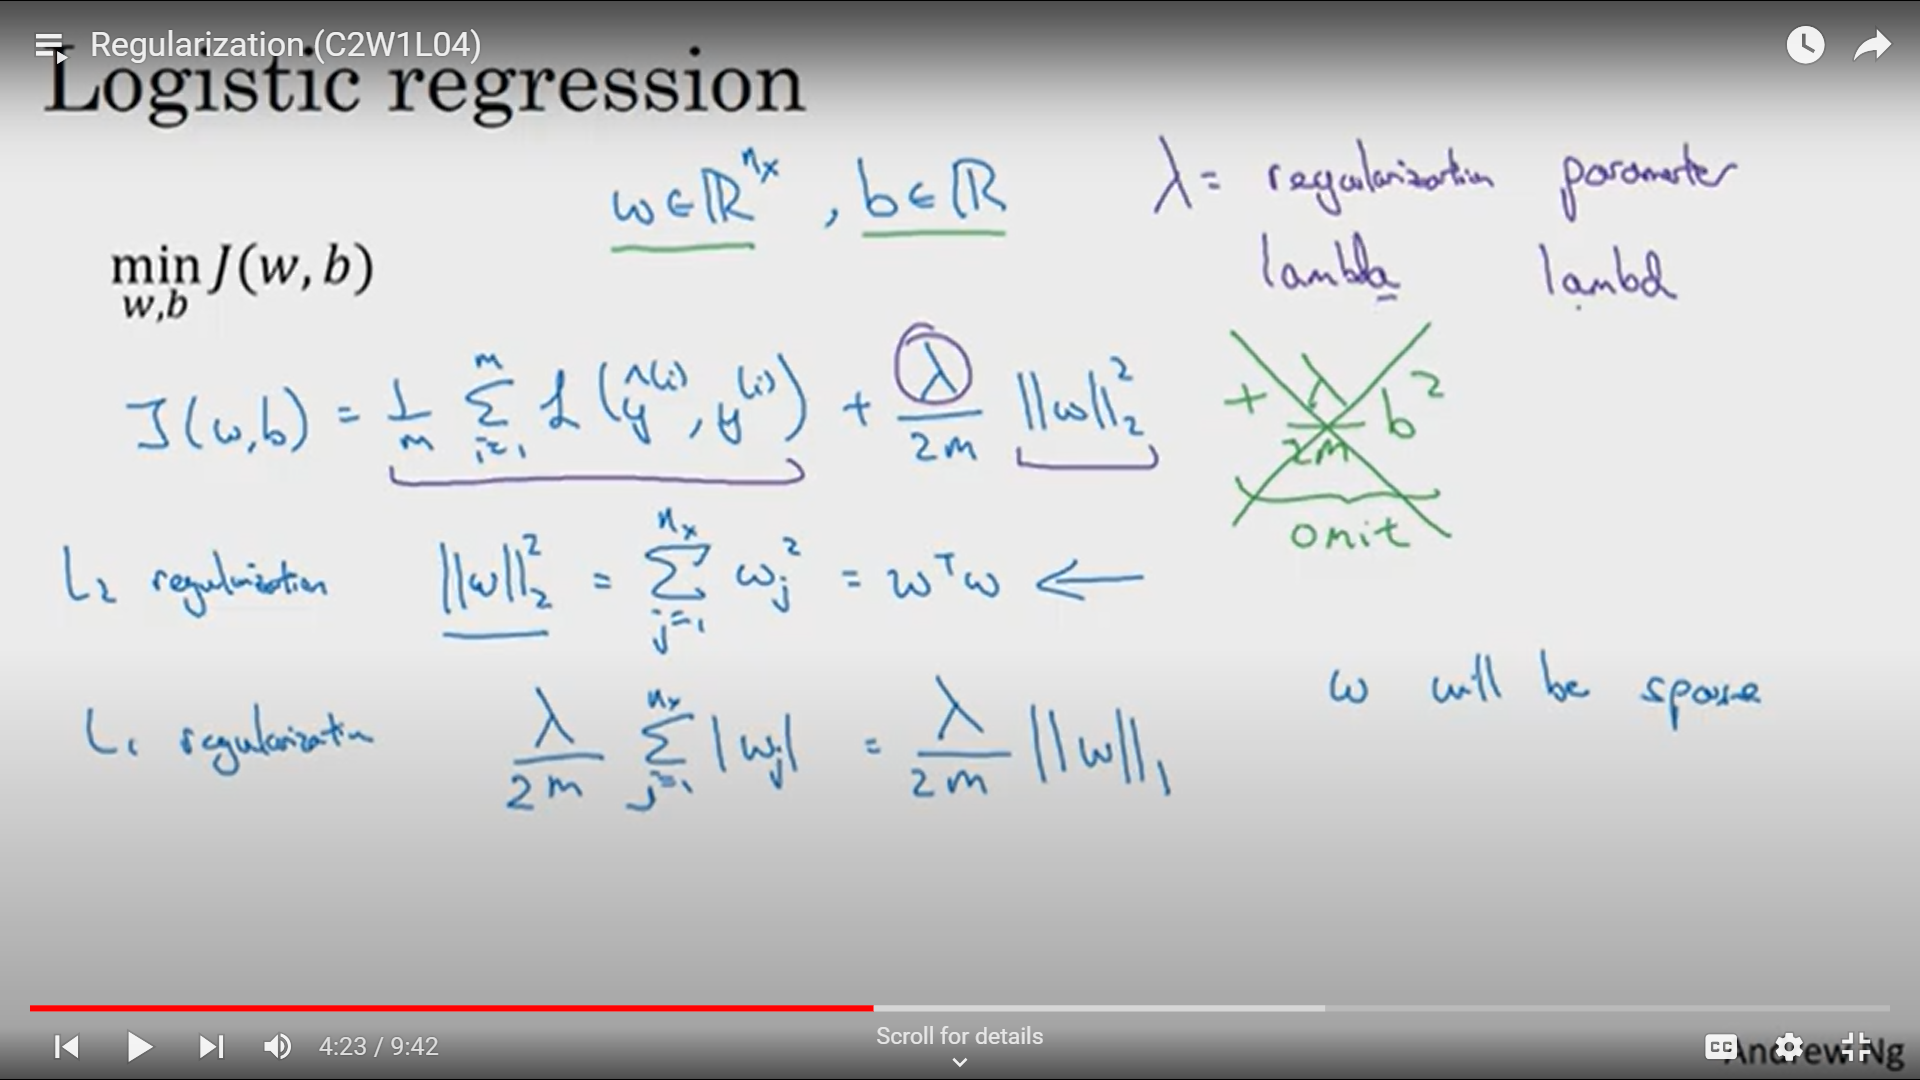 Regularization (C2W1L04)
Logistic regression
w ∈ ℝ^{n_x} , b ∈ ℝ
λ = regularization parameter
lambda lambd
min_{w,b} J(w, b)
J(w,b) = 1/m Σ_{i=1}^{m} ℒ(ŷ^{(i)}, y^{(i)}) + λ/2m ||w||_2^2 + λ/2m b^2
omit
L_2 regularization ||w||_2^2 = Σ_{j=1}^{n_x} w_j^2 = w^T w ←
w will be sparse
L_1 regularization λ/2m Σ_{j=1}^{n_x} |w_j| = λ/2m ||w||_1
4:23 / 9:42
Scroll for details
CC
Andrew Ng